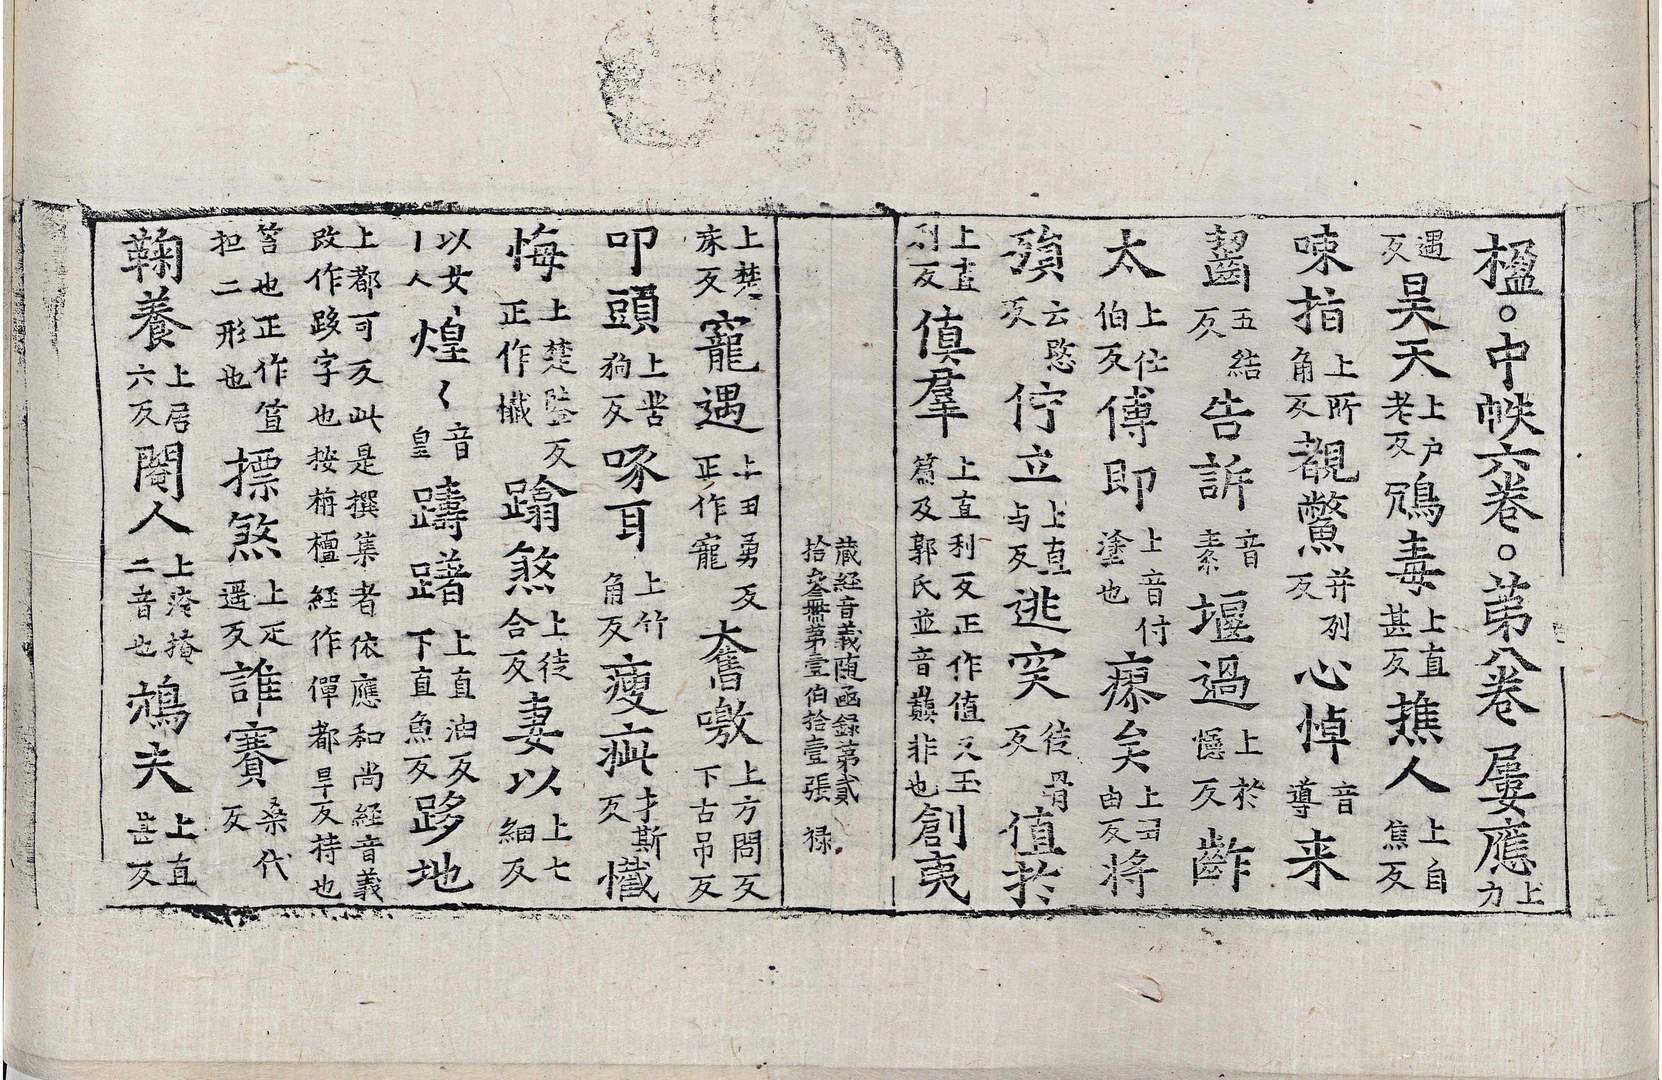 楹。中帙六卷。第八卷 屢應上力
遇反 昊天上戶老反 鴆毒上直甚反 樵人上自焦反
㖨指上所角反 覩鷩并列反 心悼音導 来
齧五結反 告訴音素 堰過上於憶反 齚
太上仕伯反 傅即上音付塗也 瘵矣上 將
殞云愍反 佇立上直与反 逃突徒骨反 值於
上直利反 傎羣上直利反正作值又玉篇及郭氏並音顛非也 創夷
藏經音義随函録第貳拾叄冊第壹伯拾壹張 禄
上楚床反 寵遇上丑勇反正作寵 奮噭上方問反下古吊反
叩頭上苦狗反 啄耳上竹角反 瘦疵才斯反 懺
悔上楚鑒反正作懺 蹹煞上徒合反 妻以上七細反
以女丶丨人 煌〻音皇 躊躇上直油反下直魚反 跢地
上都可反此是撰集者依應和尚經音義改作跢字也按栴檀經作僤都旱反持也
笞也正作笪担二形也 摽煞上疋遥反 誰賽桑代反
鞠養上居六反 閹人上淹掩二音也 鴆夫上直甚反